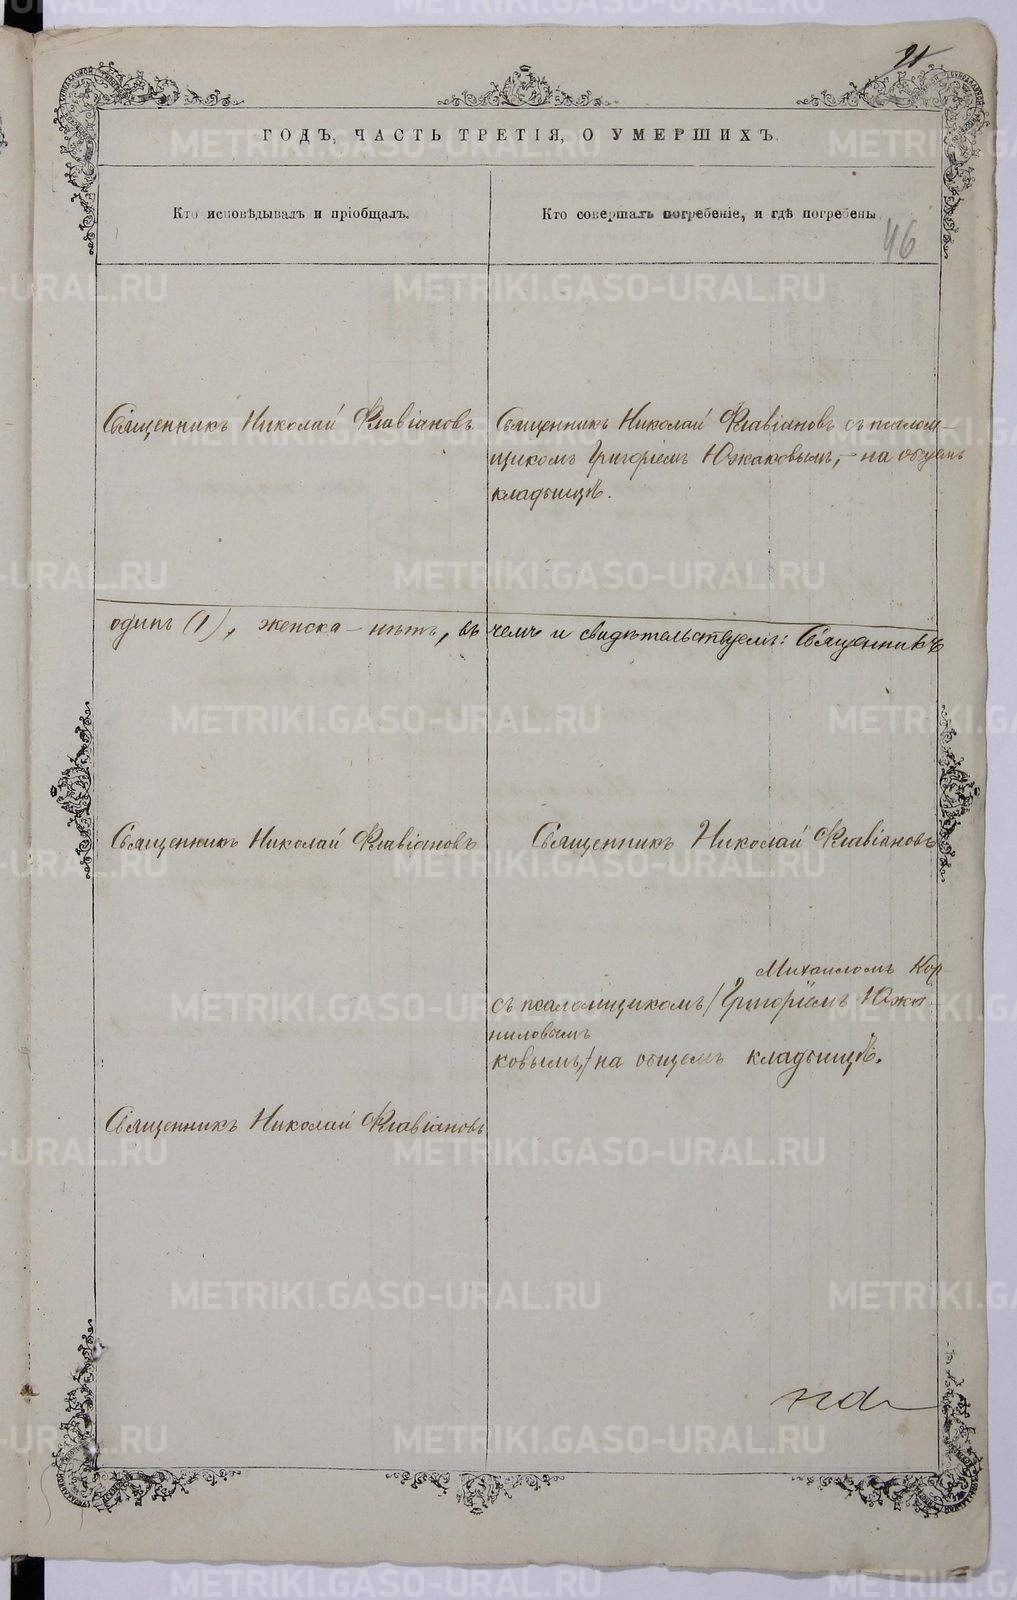 ГОДЪ, ЧАСТЬ ТРЕТІЯ, О УМЕРШИХЪ.
Кто исповѣдывалъ и пріобщалъ.
Кто совершалъ погребеніе, и гдѣ погребены.
46
Священникъ Николай Флавіановъ
Священникъ Николай Флавіановъ съ псалом-
щикомъ Григоріемъ Южаковымъ, – на общемъ
кладбищѣ.
одинъ (1), женска – нѣтъ, въ чемъ и свидѣтельствуемъ: Священникъ
Священникъ Николай Флавіановъ
Священникъ Николай Флавіановъ
Михаиломъ Кор-
съ псаломщикомъ / Григоріемъ Южа-
ниловымъ
ковымъ,/ на общемъ кладбищѣ.
Священникъ Николай Флавіановъ
METRIKI.GASO-URAL.RU